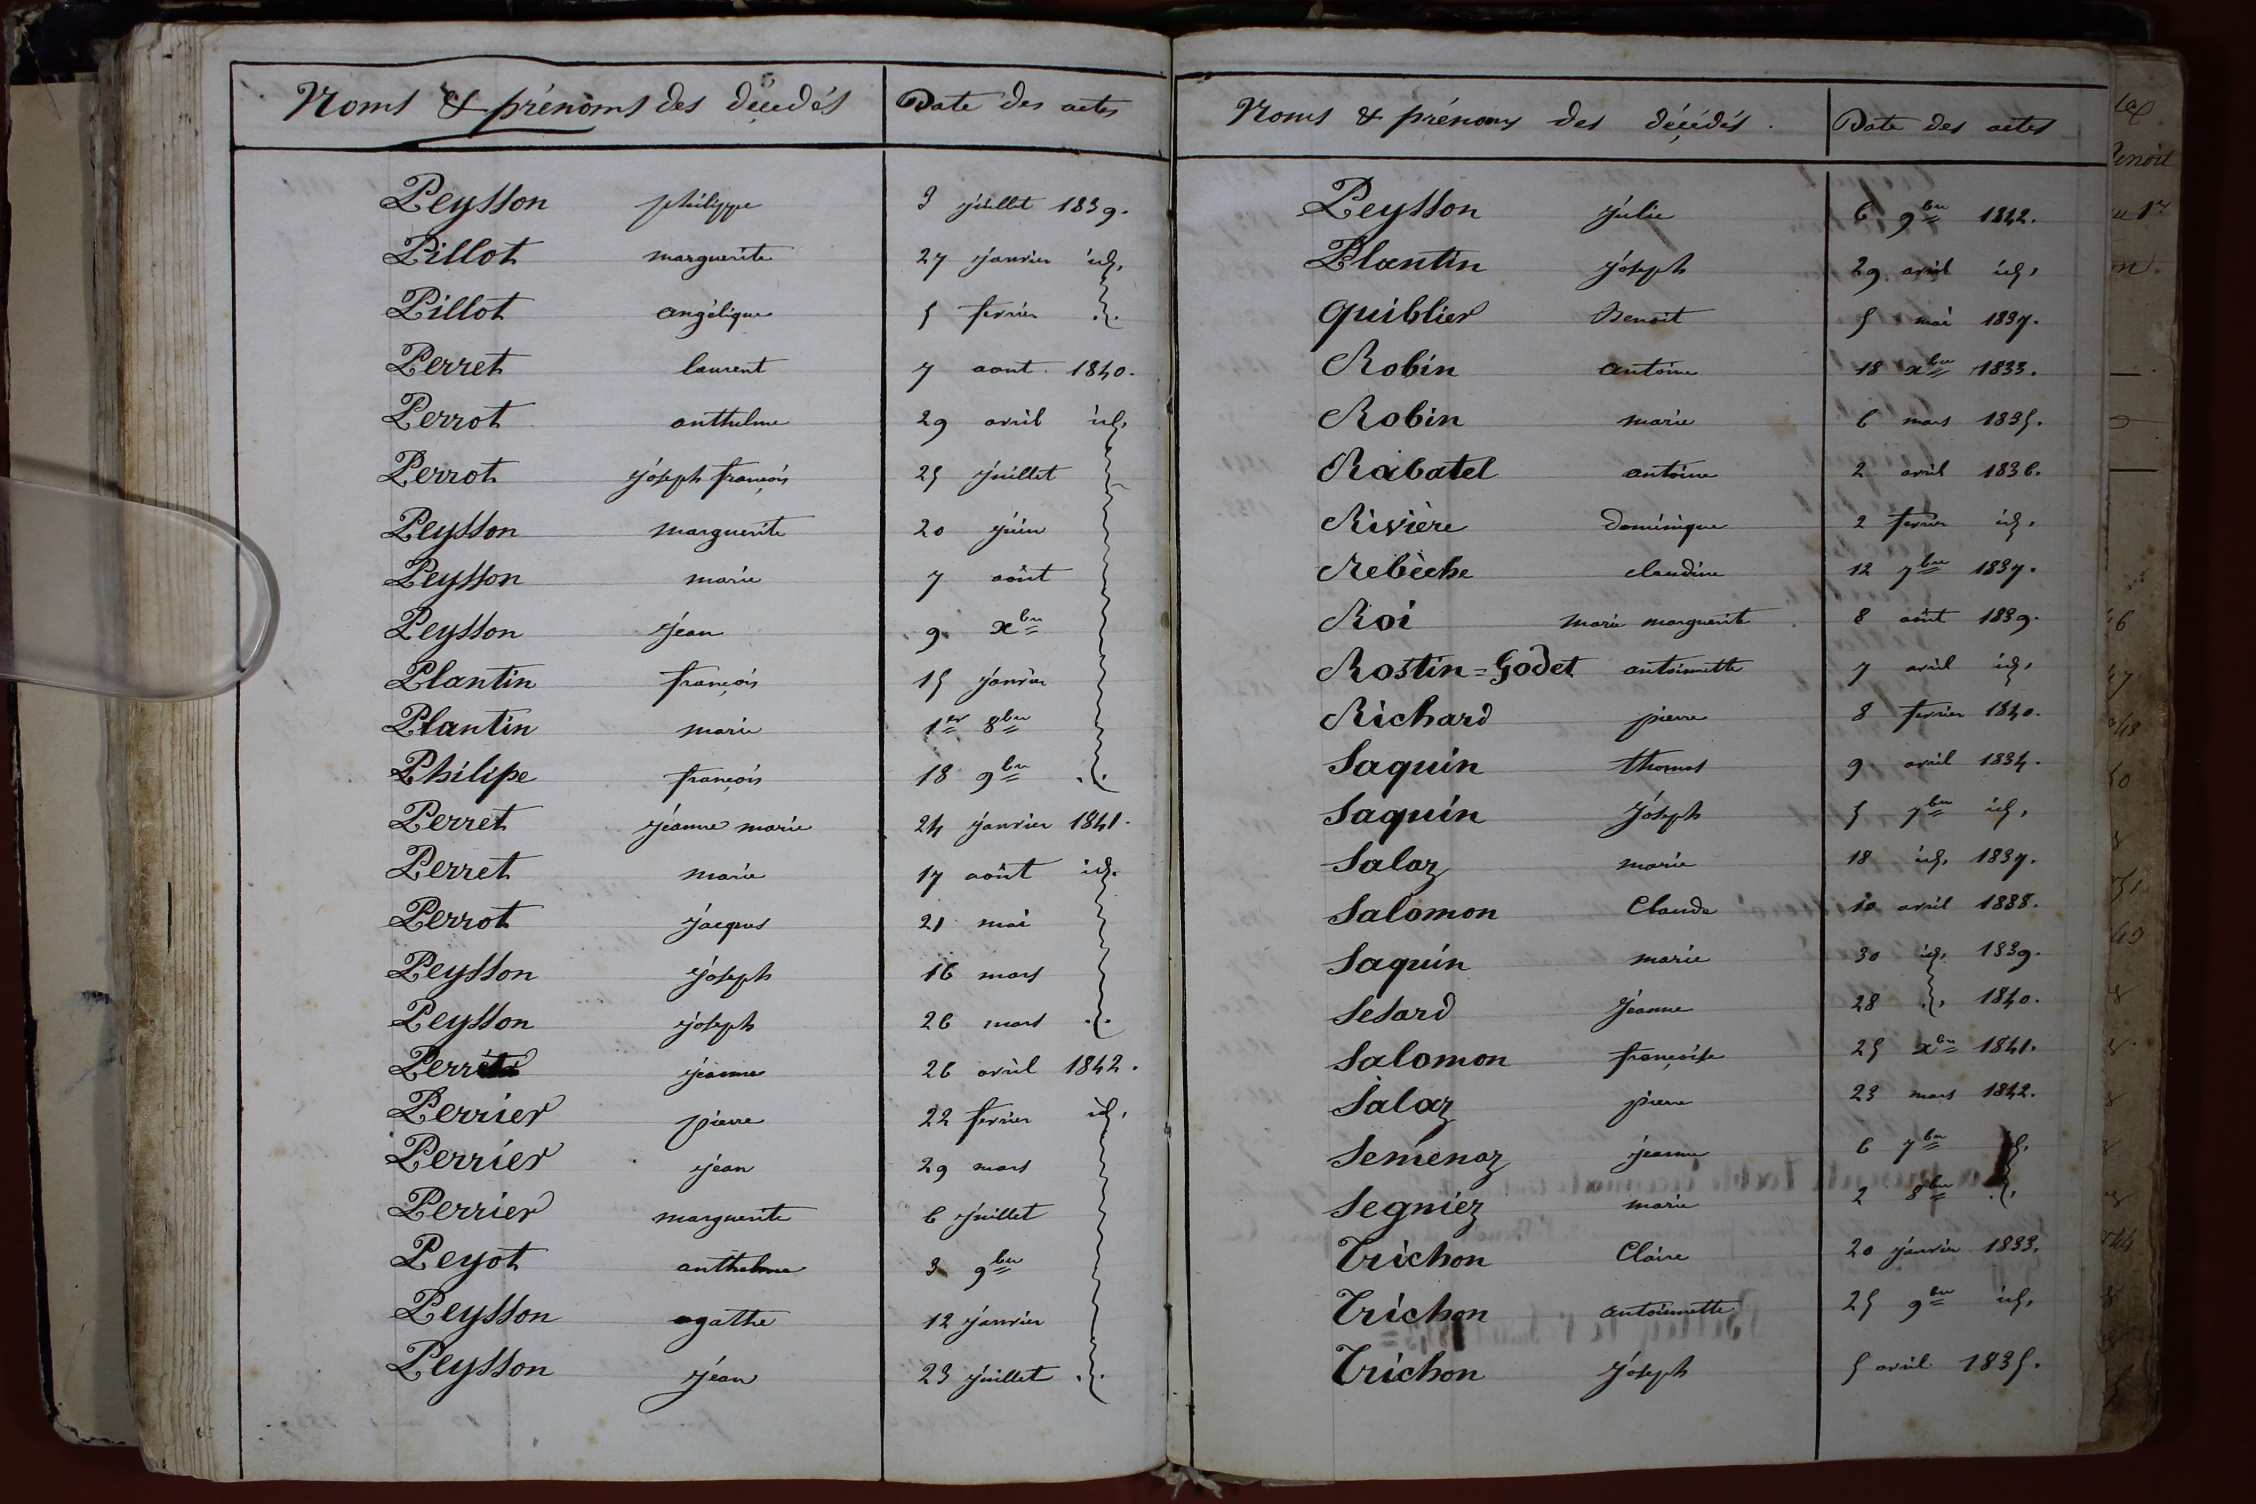 Noms & prénoms des décédés Date des actes
Peysson philippe 3 juillet 1839.
Pillot marguerite 27 janvier id.
Pillot angélique 5 fevrier
Perret laurent 7 aout 1840.
Perrot anthelme 29 avril id.
Perrot joseph françois 25 juillet
Peysson marguerite 20 juin
Peysson marie 7 août
Peysson jean 9 xbre
Plantin françois 15 janvier
Plantin marie 1er 8bre
Philipe françois 18 9bre
Perret jeanne marie 24 janvier 1841.
Perret marie 17 août id.
Perrot jacques 21 mai
Peysson joseph 16 mars
Peysson joseph 26 mars
jeanne 26 avril 1842.
Perrier pierre 22 fevrier id.
Perrier jean 29 mars
Perrier marguerite 6 juillet
Peyot anthelme 3 9bre
Peysson agathe 12 janvier
Peysson jean 23 juillet
Noms & prénoms des décédés. Date des actes
Peysson julie 6 9bre 1842.
Plantin joseph 29 avril id.
Quiblier Benoit 5 mai 1837.
Robin antoine 18 xbre 1833.
Robin marie 6 mars 1835.
Rabatel antoine 2 avril 1836.
Rivière dominique 2 fevrier id.
Rebèche claudine 12 7bre 1837.
Roi marie marguerite 8 août 1839.
Rostin=Godet antoinette 7 avril id.
Richard pierre 8 fevrier 1840.
Saquin thomas 9 avril 1834.
Saquin joseph 5 7bre id.
Salaz marie 18 id. 1837.
Salomon Claude 10 avril 1838.
Saquin marie 30 id. 1839.
Sesard jeanne 28 1840.
Salomon françoise 25 xbre 1841.
Salaz pierre 23 mars 1842.
Semenaz jeanne 6 7bre id.
Segniez marie 2 8bre
Trichon Claire 20 janvier 1833.
Trichon antoinette 25 9bre id.
Trichon joseph 5 avril 1835.